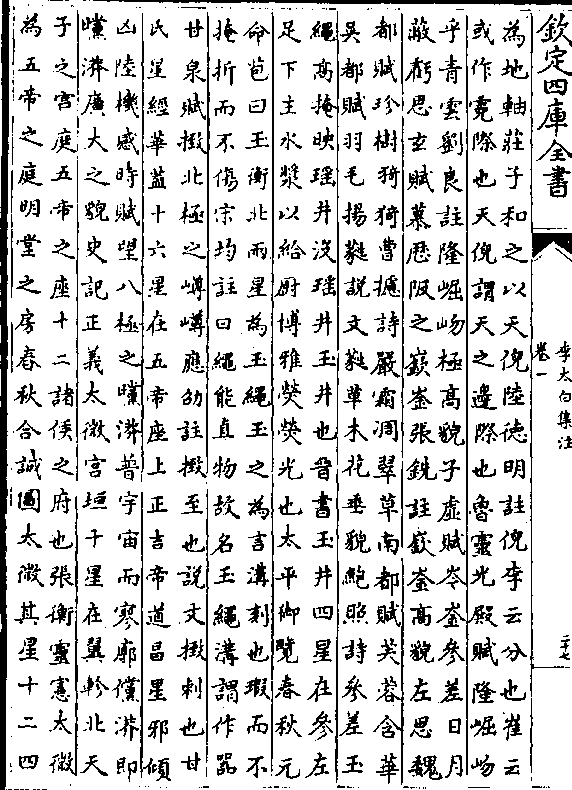 欽定四庫全書
李太白集注
卷一
二十七
為地軸莊子和之以天倪陸德明註倪李云分也崔云
或作霓際也天倪謂天之邊際也魯靈光殿賦隆崛岉
乎青雲劉良註隆崛岉極高貌子虛賦岑崟參差日月
蔽虧思玄賦慕歴阪之嶔崟張銑註嶔崟高貌左思魏
都賦珍樹猗猗曹攄詩嚴霜凋翠草南都賦芙蓉含華
吳都賦羽毛揚蕤說文蕤草木花垂貌鮑照詩參差玉
繩高掩映瑶井沒瑶井玉井也晉書玉井四星在參左
足下主水漿以給厨博雅熒熒光也太平御覽春秋元
命苞曰玉衡北兩星為玉繩玉之為言溝刻也瑕而不
掩折而不傷宗均註曰繩能直物故名玉繩溝謂作器
甘泉賦撽北極之嶟嶟應劭註撽至也說文撽刺也甘
氏星經華蓋十六星在五帝座上正吉帝道昌星邪傾
凶陸機感時賦望八極之曭漭普宇宙而寥廓儻漭即
曭漭廣大之貌史記正義太微宮垣十星在翼軫北天
子之宮庭五帝之座十二諸侯之府也張衡靈憲太微
為五帝之庭明堂之房春秋合誠圖太微其星十二四